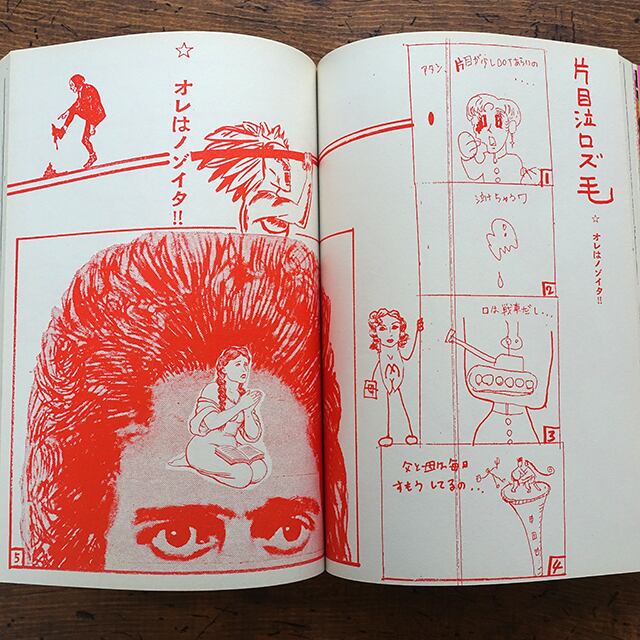 片目泣ロズ毛
☆ オレはノゾイタ!!
アタシ、片目が少しDOTあらいの
....
1
泣けちゃうワ
2
口は戦車だし...
3
父と母は毎日
すもうしてるの...
4
☆ オレはノゾイタ!!
5